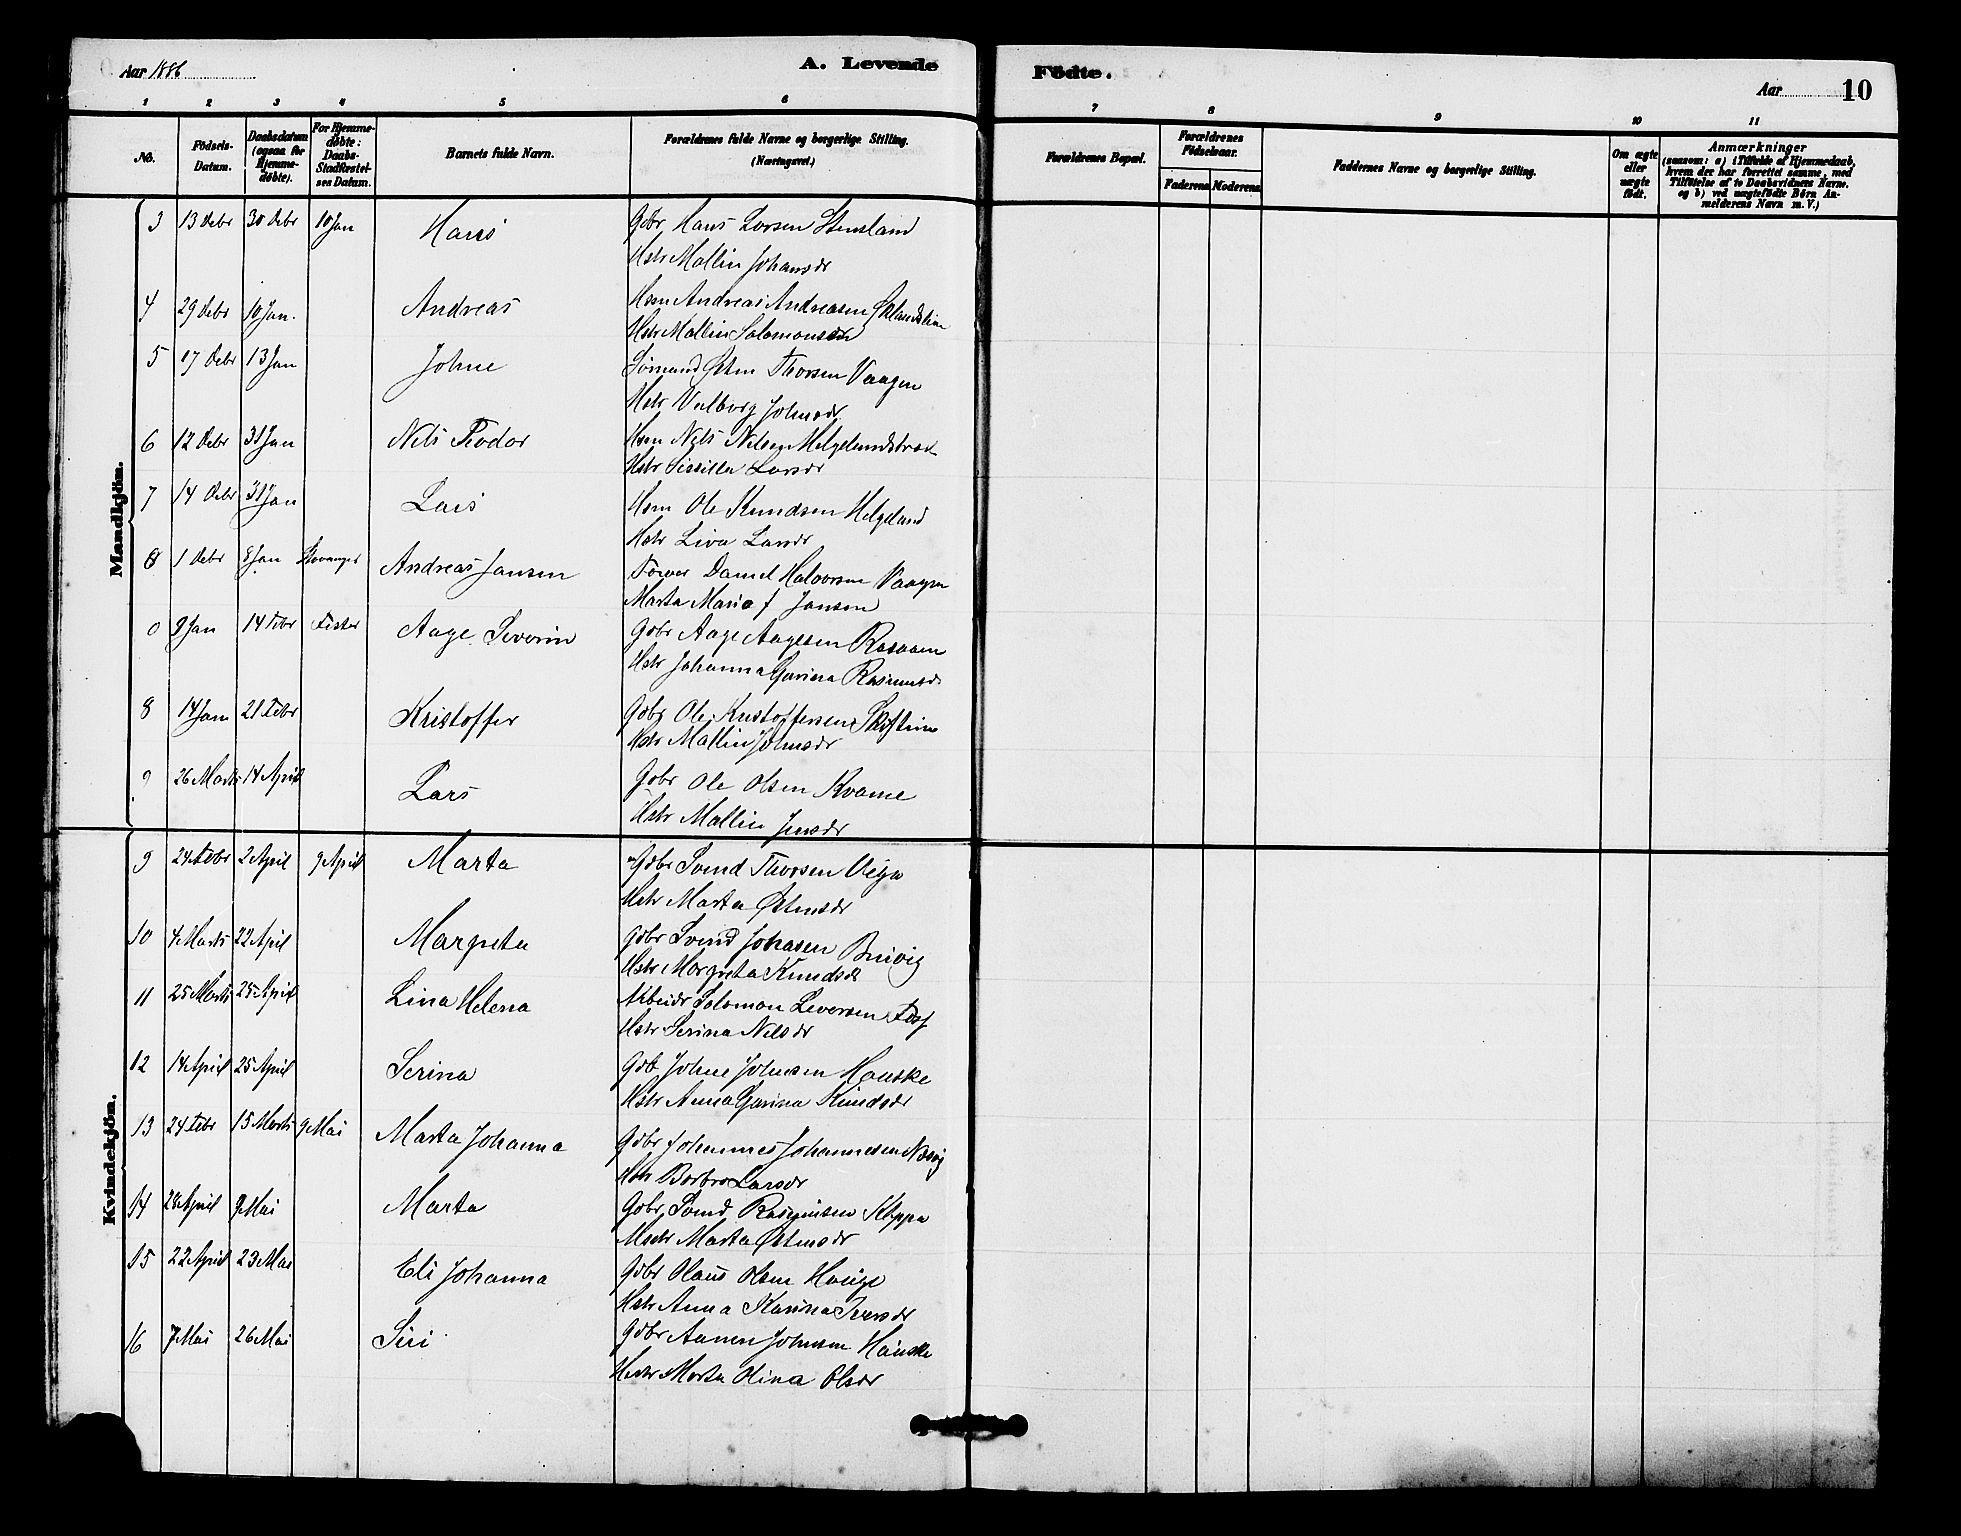 Aar 1886
A. Levende
Födte.
Aar
10
1 2 3 4 5 6 7 8 9 10 11
No.
Födsels-Datum.
Daabsdatum (ogsaa for Hjemmedöbte).
For Hjemmedöbte: Daabs-Stadfæstelses Datum.
Barnets fulde Navn.
Forældrenes fulde Navne og borgerlige Stilling. (Næringsvei.)
Forældrenes Bopæl.
Forældrenes Födselsaar.
Faderens
Moderens
Faddernes Navne og borgerlige Stilling.
Om ægte eller uægte födt.
Anmærkninger
(saasom: a) i Tilfælde af Hjemmedaab, hvem der har forrettet samme, med Tilföielse af to Daabsvidners Navne. og b) ved uægtefödte Börn Anmelderens Navn m. V.)
Mandkjön.
3 13 Debr 30 Debr 10 Jan Hans Gdbr Hans Larsen Stensland
Hstr Mallin Johansdr
4 29 Debr 10 Jan. Andreas Hsm Andreas Andreasen
Hstr Mallin Salomonsdr
5 17 Debr 13 Jan Johne Sømand Østen Thorsen Vaagen
Hstr Valborg Johnsdr
6 12 Debr 31 Jan Nils Teodor Hsm Nils Nilsen
Hstr Sissilla Larsdr
7 14 Debr 31 Jan Lars Hsm Ole Knudsen Helgeland
Hstr Liva Larsdr
8 1 Debr 8 Jan Stavanger Andreas Jansen Daniel Halvorsen Vaagen
Marta Maria f Jansen
0 9 Jan 14 Febr Fister Aage Severin Gdbr Aage Aagesen
Hstr Johanna Gurina Rasmusdr
8 14 Jan 21 Febr Kristoffer Gdbr Ole Kristoffersen
Hstr Mallin Johnsdr
9 26 Marts 14 April Lars Gdbr Ole Olsen Kvame
Hstr Mallin Jensdr
Kvindekjön.
9 24 Febr 2 April 9 April Marta Gdbr Svend Thorsen
Hstr Marta Østensdr
10 4 Marts 22 April Margreta Gdbr Svend Johasen
Hstr Margreta Knudsdr
11 25 Marts 25 April Lina Helena Arbeidr Salomon Seversen
Hstr Serina Nilsdr
12 14 April 25 April Serina Gdb Johne Johnsen Hauske
Hstr Anna Gurina Knudsdr
13 24 Febr 15 Marts 9 Mai Marta Johanna Gdbr Johannes Johannesen
Hstr Barbro Larsdr
14 28 April 9 Mai Marta Gdbr Svend Rasmusen Kleppa
Hstr Marta Østensdr
15 22 April 23 Mai Eli Johanna Gdbr Olaus Olsen Hauge
Hstr Anna Karina Iversdr
16 7 Mai 26 Mai Siri Gdbr Aanen Johnsen Hauske
Hstr Marta Olina Olsdr